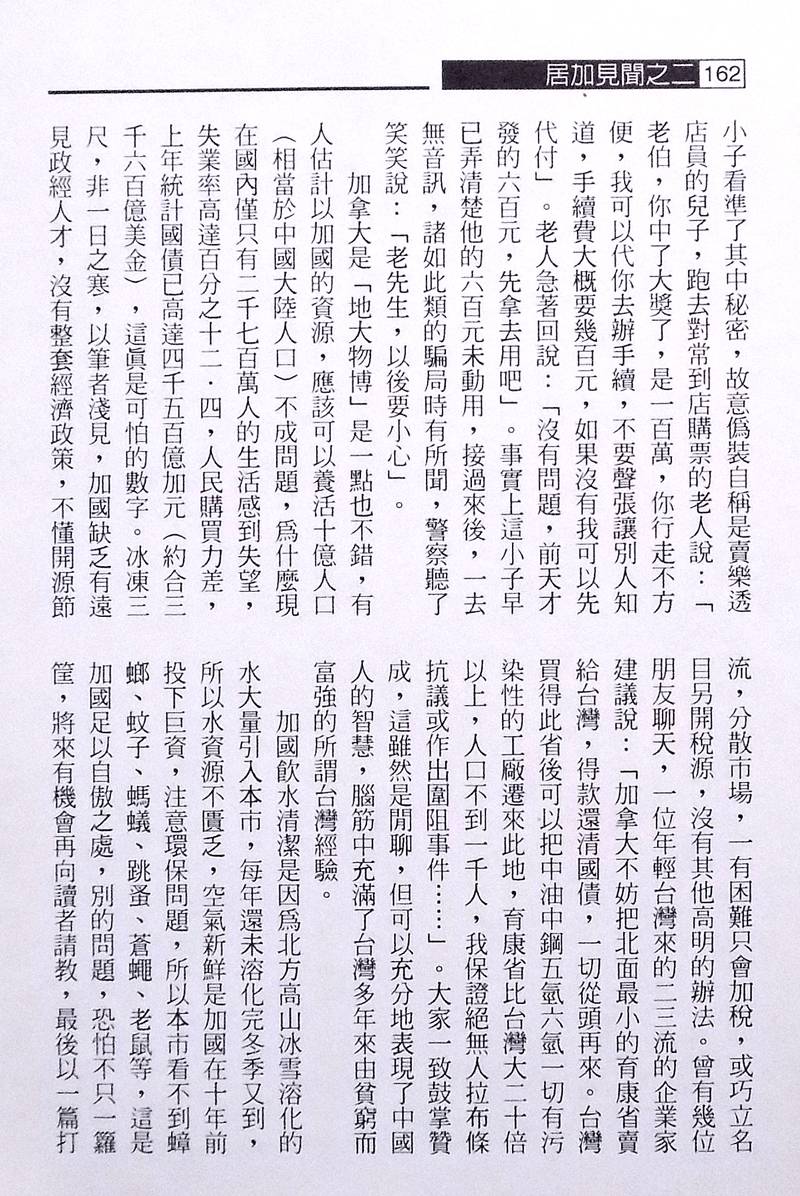 居加見聞之二 162
小子看準了其中秘密，故意偽裝自稱是賣樂透
店員的兒子，跑去對常到店購票的老人說：「
老伯，你中了大獎了，是一百萬，你行走不方
便，我可以代你去辦手續，不要聲張讓別人知
道，手續費大概要幾百元，如果沒有我可以先
代付」。老人急著回說：「沒有問題，前天才
發的六百元，先拿去用吧」。事實上這小子早
已弄清楚他的六百元未動用，接過來後，一去
無音訊，諸如此類的騙局時有所聞，警察聽了
笑笑說：「老先生，以後要小心」。
加拿大是「地大物博」是一點也不錯，有
人估計以加國的資源，應該可以養活十億人口
（相當於中國大陸人口）不成問題，爲什麼現
在國內僅只有二千七百萬人的生活感到失望，
失業率高達百分之十二．四，人民購買力差，
上年統計國債已高達四千五百億加元（約合三
千六百億美金），這眞是可怕的數字。冰凍三
尺，非一日之寒，以筆者淺見，加國缺乏有遠
見政經人才，沒有整套經濟政策，不懂開源節
流，分散市場，一有困難只會加稅，或巧立名
目另開稅源，沒有其他高明的辦法。曾有幾位
朋友聊天，一位年輕台灣來的二三流的企業家
建議說：「加拿大不妨把北面最小的育康省賣
給台灣，得款還清國債，一切從頭再來。台灣
買得此省後可以把中油中鋼五氫六氫一切有污
染性的工廠遷來此地，育康省比台灣大二十倍
以上，人口不到一千人，我保證絕無人拉布條
抗議或作出圍阻事件……」。大家一致鼓掌贊
成，這雖然是閒聊，但可以充分地表現了中國
人的智慧，腦筋中充滿了台灣多年來由貧窮而
富強的所謂台灣經驗。
加國飲水清潔是因爲北方高山冰雪溶化的
水大量引入本市，每年還未溶化完冬季又到，
所以水資源不匱乏，空氣新鮮是加國在十年前
投下巨資，注意環保問題，所以本市看不到蟑
螂、蚊子、螞蟻、跳蚤、蒼蠅、老鼠等，這是
加國足以自傲之處，別的問題，恐怕不只一籮
筐，將來有機會再向讀者請教，最後以一篇打